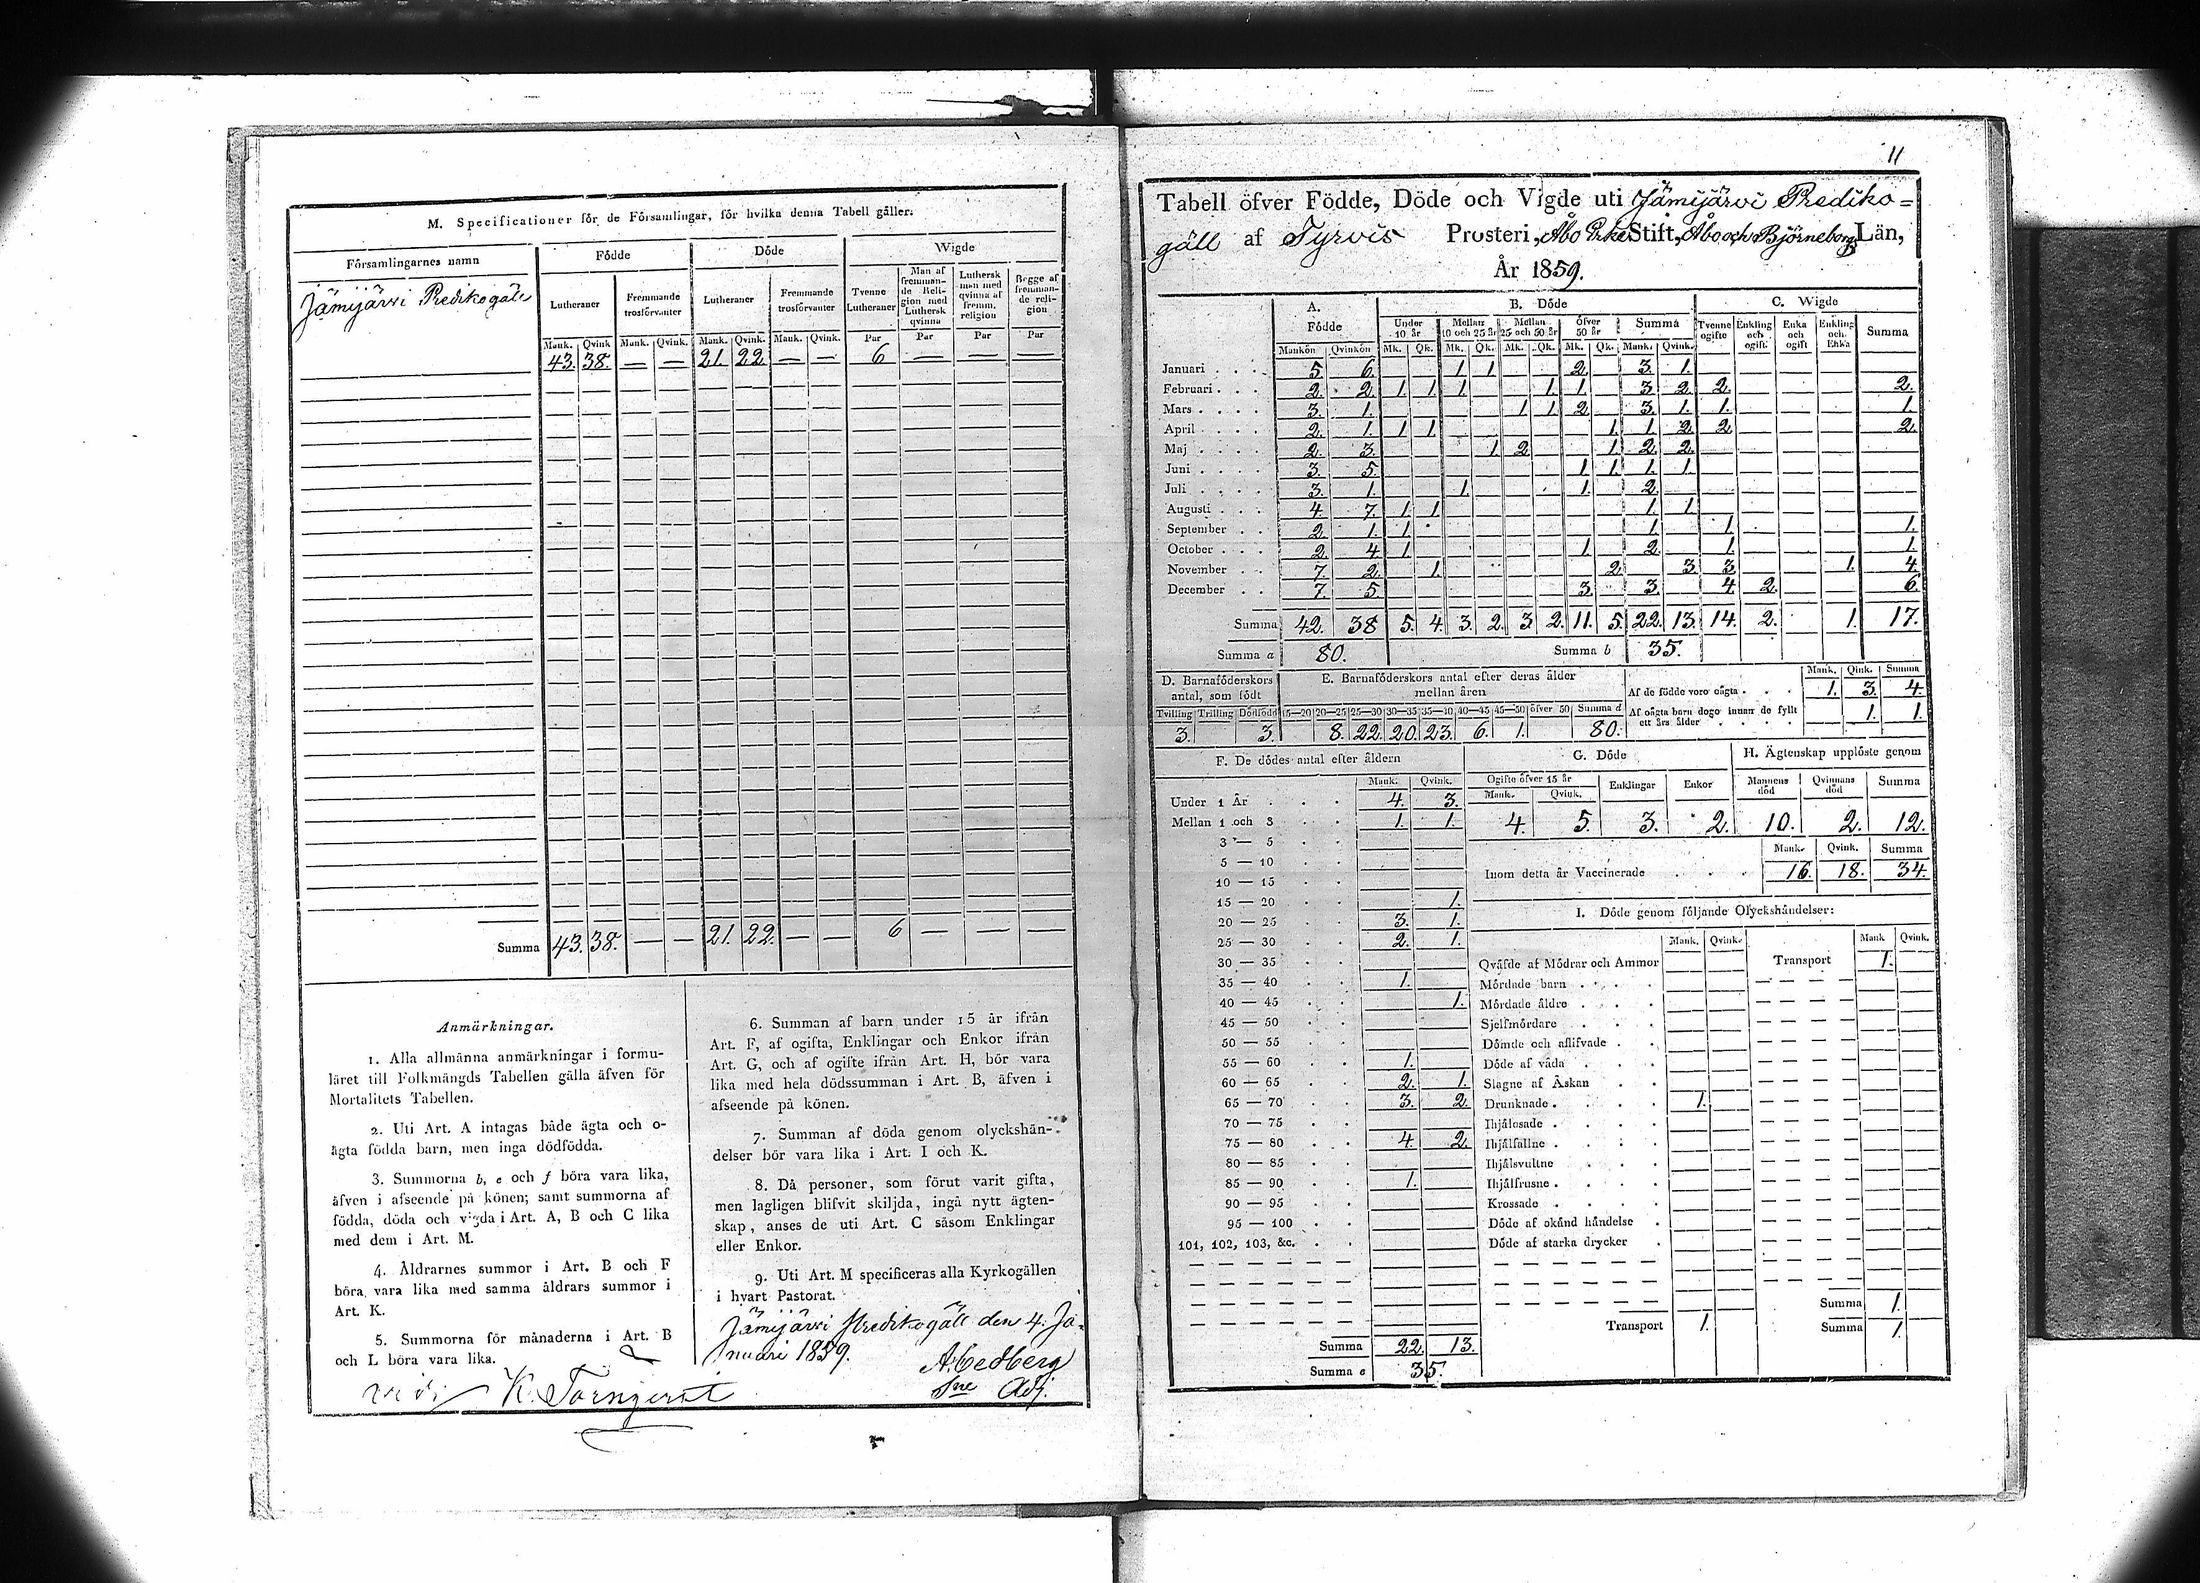 M. Specificationer för de Församlingar, för hvilka denna Tabell gäller:
Församlingarnes namn | Födde | Döde | Wigde
Lutheraner | Fremmande trosförvanter | Lutheraner | Fremmande trosförvanter | Tvenne Lutheraner | Man af fremmande Religion med Luthersk qvinna | Luthersk man med qvinna af fremm. religion | Begge af fremmande religion
Mank. | Qvink. | Mank. | Qvink. | Mank. | Qvink. | Mank. | Qvink. | Par | Par | Par | Par
Jämijärvi Predikogäll | 43. | 38. | — | — | 21. | 22. | — | — | 6 | — | — | —
Summa | 43. | 38. | — | — | 21. | 22. | — | — | 6 | — | — | —
Anmärkningar.
1. Alla allmänna anmärkningar i formu-
läret till Folkmängds Tabellen gälla äfven för
Mortalitets Tabellen.
2. Uti Art. A intagas både ägta och o-
ägta födda barn, men inga dödfödda.
3. Summorna b, e och f böra vara lika,
äfven i afseende på könen; samt summorna af
födda, döda och vigda i Art. A, B och C lika
med dem i Art. M.
4. Åldrarnes summor i Art. B och F
böra vara lika med samma åldrars summor i
Art. K.
5. Summorna för månaderna i Art. B
och L böra vara lika.
6. Summan af barn under 15 år ifrån
Art. F, af ogifta, Enklingar och Enkor ifrån
Art. G, och af ogifte ifrån Art. H, bör vara
lika med hela dödssumman i Art. B, äfven i
afseende på könen.
7. Summan af döda genom olyckshän-
delser bör vara lika i Art. I och K.
8. Då personer, som förut varit gifta,
men lagligen blifvit skiljda, ingå nytt ägten-
skap, anses de uti Art. C såsom Enklingar
eller Enkor.
9. Uti Art. M specificeras alla Kyrkogällen
i hvart Pastorat.
Jämijärvi Predikogäll den 4. Ja-
nuari 1859.
A. Cedberg
Adj.
vidi K. Törnqvist
11
Tabell öfver Födde, Döde och Vigde uti Jämijärvi Prediko=
gäll af Tyrvis Prosteri, Åbo Erke Stift, Åbo och Björneborgs Län,
År 1859.
A. Födde | B. Döde | C. Wigde
Mankön | Qvinkön | Under 10 år | Mellan 10 och 25 år | Mellan 25 och 50 år | Öfver 50 år | Summa | Tvenne ogifte | Enkling och ogift. | Enka och ogift | Enkling och Enka | Summa
Mk. | Qk. | Mk. | Qk. | Mk. | Qk. | Mk. | Qk. | Mank. | Qvink.
Januari | 5. | 6. | 1. | 1. | 2. | 3. | 1.
Februari | 2. | 2. | 1. | 1. | 1. | 1. | 1. | 3. | 2. | 2. | 2.
Mars | 3. | 1. | 1. | 1. | 2. | 3. | 1. | 1. | 1.
April | 2. | 1. | 1. | 1. | 1. | 1. | 2. | 2. | 2.
Maj | 2. | 3. | 1. | 2. | 1. | 2. | 2.
Juni | 3. | 5. | 1. | 1. | 1. | 1.
Juli | 3. | 1. | 1. | 1. | 2.
Augusti | 4. | 7. | 1. | 1. | 1. | 1.
September | 2. | 1. | 1. | 1. | 1. | 1.
October | 2. | 4. | 1. | 1. | 2. | 1. | 1.
November | 7. | 2. | 1. | 2. | 3. | 3. | 1. | 4.
December | 7. | 5. | 3. | 3. | 4. | 2. | 6.
Summa | 42. | 38 | 5. | 4. | 3. | 2. | 3. | 2. | 11. | 5. | 22. | 13. | 14. | 2. | 1. | 17.
Summa a | 80. | Summa b | 35.
D. Barnaföderskors antal, som födt | E. Barnaföderskors antal efter deras ålder mellan åren
Tvilling | Trilling | Dödfödd | 15—20 | 20—25 | 25—30 | 30—35 | 35—40 | 40—45 | 45—50 | öfver 50 | Summa d
3. | 3. | 8. | 22. | 20. | 23. | 6. | 1. | 80.
Mank. | Qink. | Summa
Af de födde voro oägta | 1. | 3. | 4.
Af oägta barn dogo innan de fyllt ett års ålder | 1. | 1.
F. De dödes antal efter åldern
Mank. | Qvink.
Under 1 År | 4. | 3.
Mellan 1 och 3 | 1. | 1.
3 — 5
5 — 10
10 — 15
15 — 20 | 1.
20 — 25 | 3. | 1.
25 — 30 | 2. | 1.
30 — 35
35 — 40 | 1.
40 — 45 | 1.
45 — 50
50 — 55
55 — 60 | 1.
60 — 65 | 2. | 1.
65 — 70 | 3. | 2.
70 — 75
75 — 80 | 4. | 2.
80 — 85
85 — 90 | 1.
90 — 95
95 — 100
101, 102, 103, &c.
Summa | 22. | 13.
Summa e | 35.
G. Döde
Ogifte öfver 15 år | Enklingar | Enkor
Mank. | Qvink.
4. | 5. | 3. | 2.
H. Ägtenskap upplöste genom
Mannens död | Qvinnans död | Summa
10. | 2. | 12.
Mank. | Qvink. | Summa
Inom detta år Vaccinerade | 16. | 18. | 34.
I. Döde genom följande Olyckshändelser:
Mank. | Qvink. | Mank | Qvink.
Qväfde af Mödrar och Ammor | Transport | 1.
Mördade barn
Mördade äldre
Sjelfmördare
Dömde och aflifvade
Döde af våda
Slagne af Åskan
Drunknade | 1.
Ihjälosade
Ihjälfallne
Ihjälsvultne
Ihjälfrusne
Krossade
Döde af okänd händelse
Döde af starka drycker
Summa | 1.
Transport | 1. | Summa | 1.